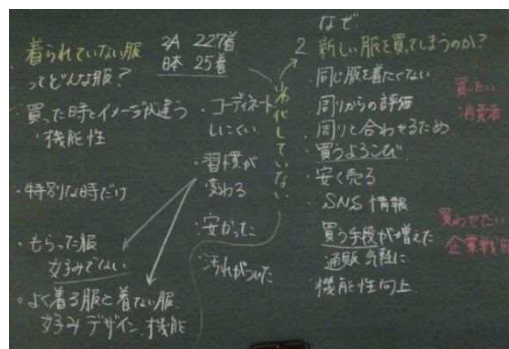 着られていない服
ってどんな服？
2A 227着
日本 25着
買った時とイメージが違う
・機能性
・特別な時だけ
・もらった服
好みでない
・よく着る服と着ない服
好み デザイン 機能
・コーディネート
しにくい
・習慣が
変わる
・安かった
・汚れがついた
劣化していない
なぜ
2 新しい服を買ってしまうのか？
同じ服を着たくない
周りからの評価
周りと合わせるため
買うよろこび
安く売る
SNS 情報
買う手段が増えた
通販 気軽に
機能性向上
買いたい
消費者
買わせたい
企業戦略